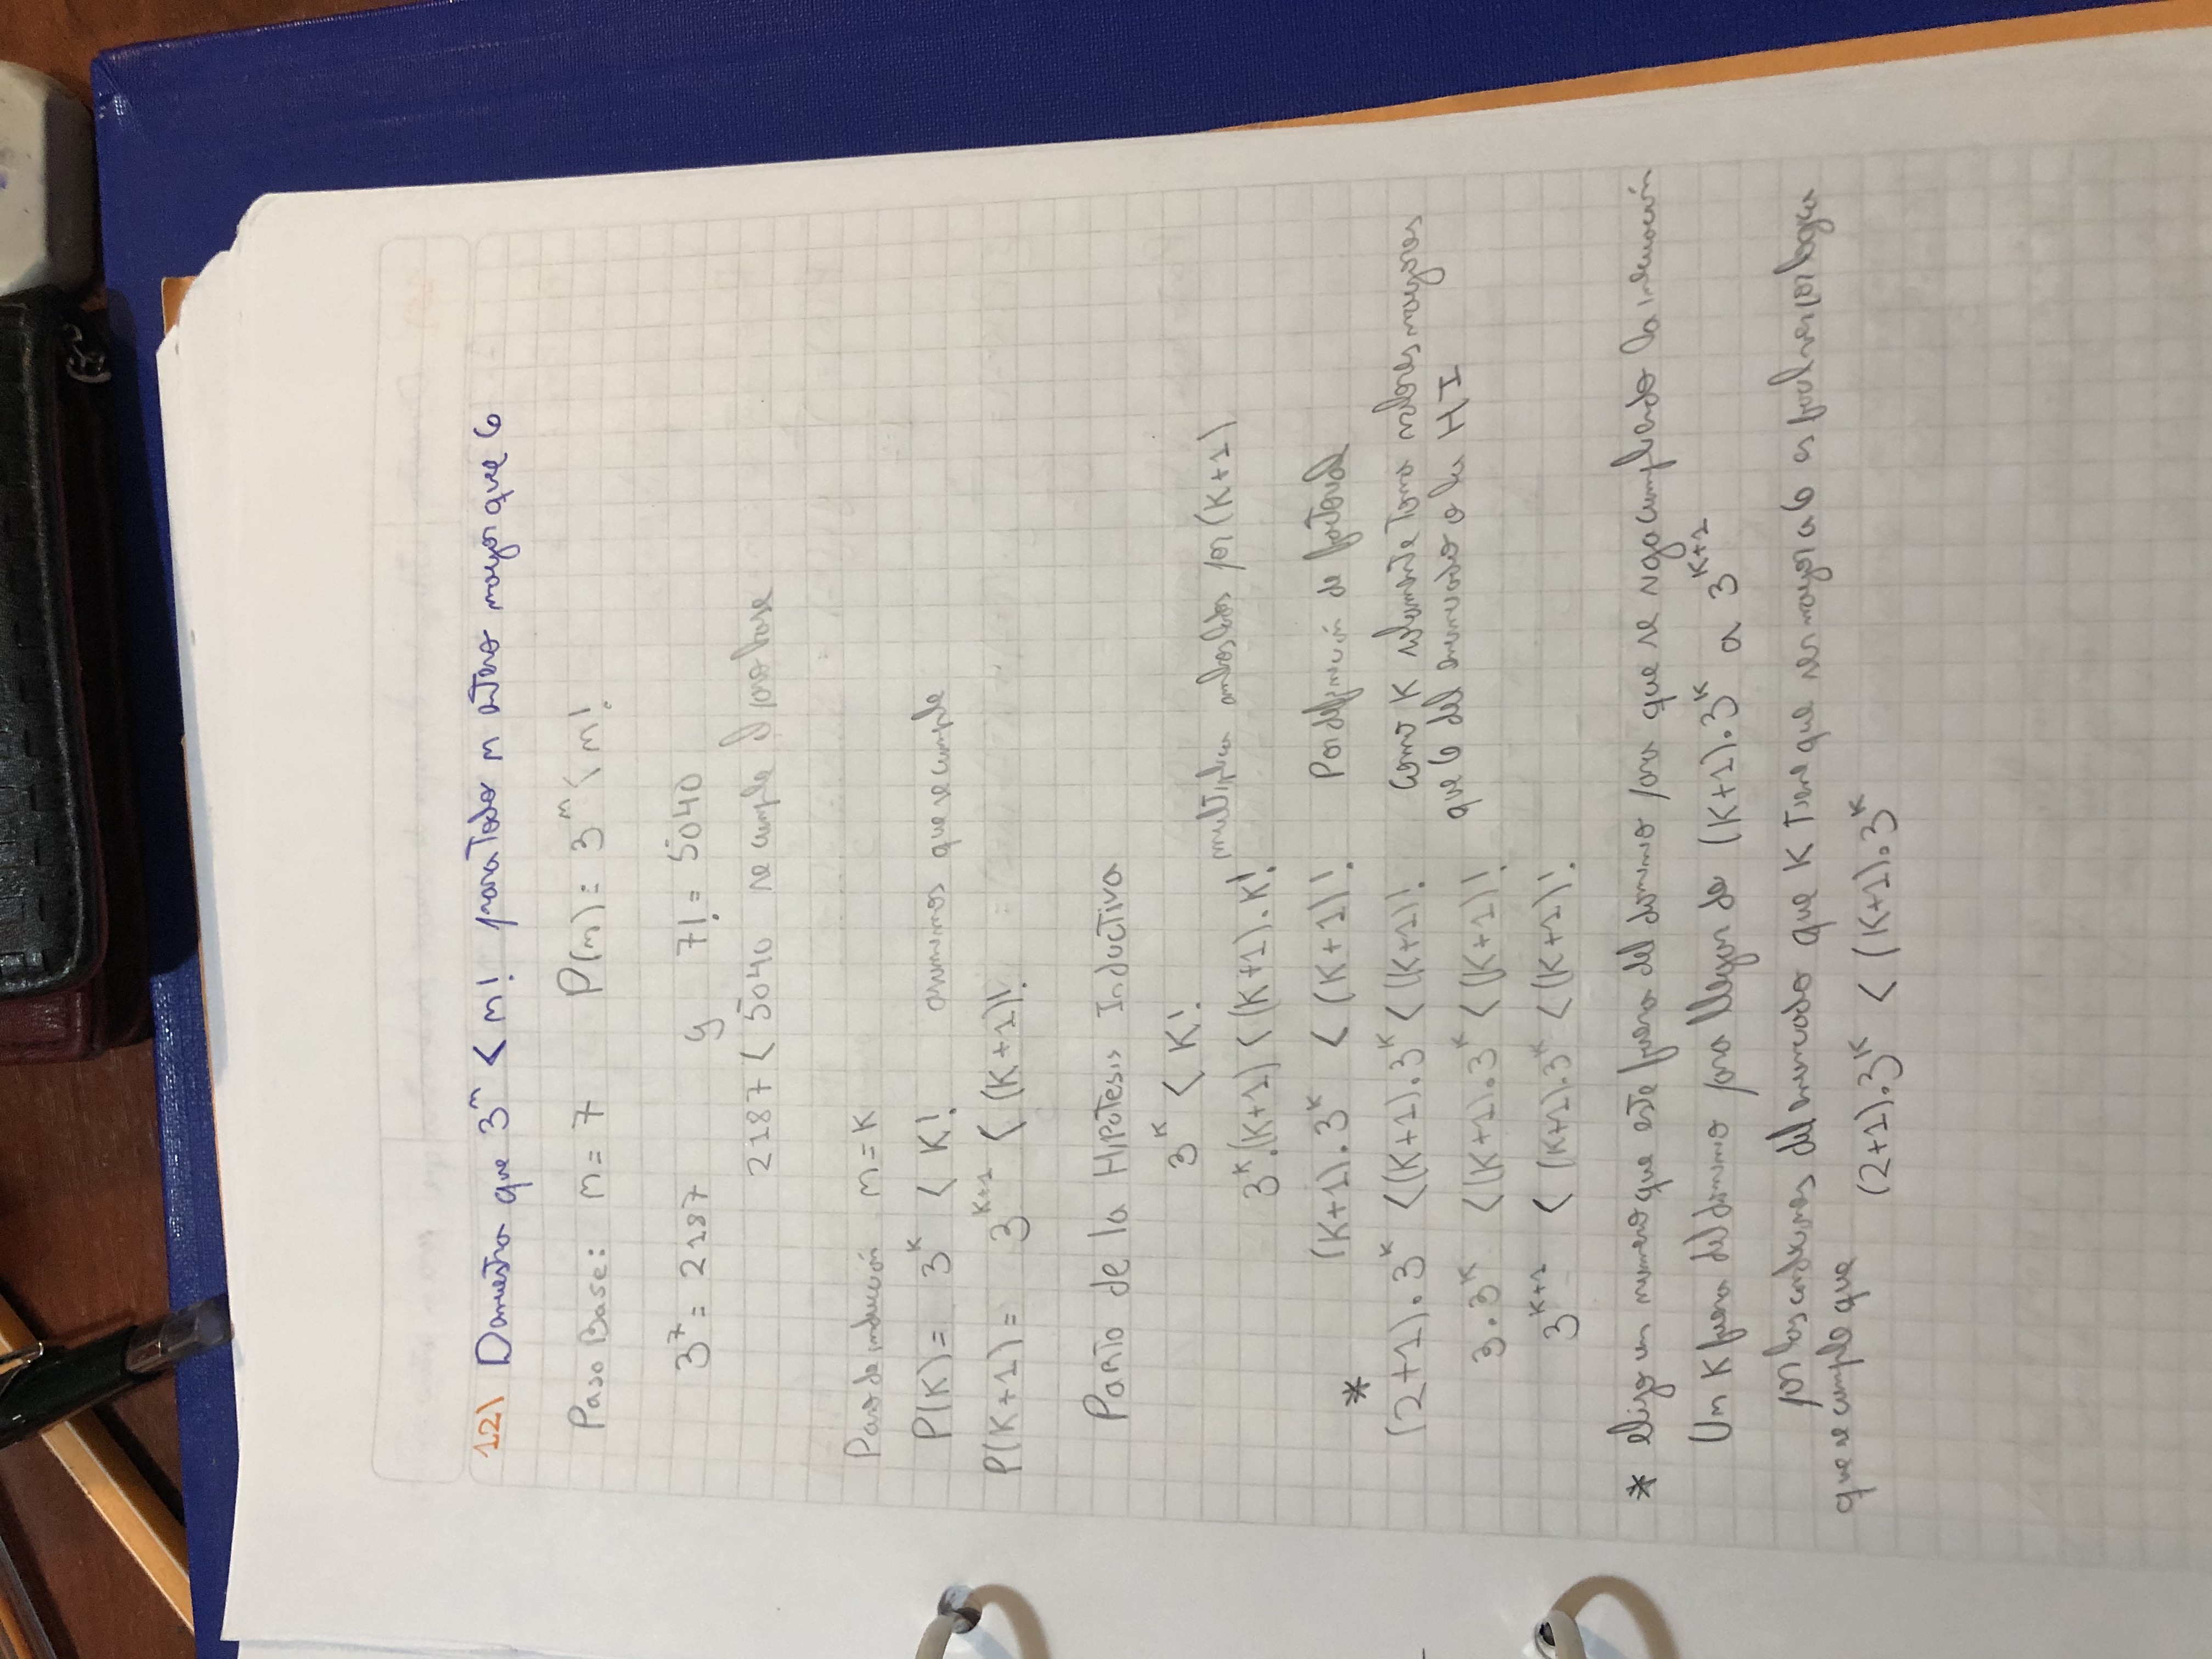 12) Demuestra que 3^n < n! para todo n entero mayor que 6
Paso Base: n = 7 P(n): 3^n < n!
3^7 = 2187 y 7! = 5040
2187 < 5040 se cumple el paso base
Paso de inducción n = K
P(K) = 3^K < K! asumimos que se cumple
P(K+1) = 3^{K+1} < (K+1)!
Parto de la Hipotesis Inductiva
3^K < K!
3^K.(K+1) < (K+1).K! multiplica ambos lados por (K+1)
(K+1).3^K < (K+1)! Por definición de factorial
*
(2+1).3^K < (K+1).3^K < (K+1)! como K solamente toma valores mayores
que 6 del enunciado o la HI
3.3^K < (K+1).3^K < (K+1)!
3^{K+1} < (K+1).3^K < (K+1)!
* elijo un numero que este fuera del dominio para que se siga cumpliendo la inecuación
Un K fuera del dominio para llegar de (K+1).3^K a 3^{K+1}
por las condiciones del enunciado que K tiene que ser mayor a 6 es facil ver por logica
que se cumple que
(2+1).3^K < (K+1).3^K